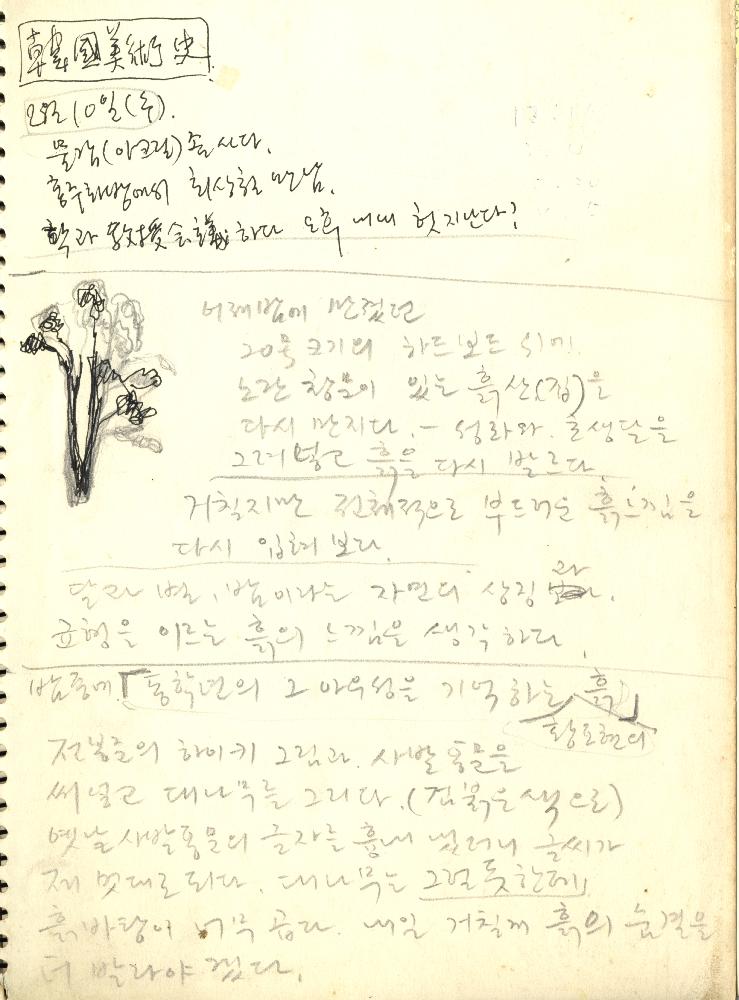 韓國美術史
2월 10일(수).
물감(아크릴)을 사다.
홍주화방에서 최상천 만남.
학과 敎授会議하다 오후 내내 헛지난다?
어제밤에 만졌던
20호 크기의 하드보드 위에
노란 창문이 있는 흙산(집)을
다시 만지다. - 성좌와 초생달을
그려넣고 흙을 다시 발르다.
거칠지만 전체적으로 부드러운 흙느낌을
다시 입혀보다.
달과 별, 밤이라는 자연의 상징과
균형을 이르는 흙의 느낌을 생각하다.
밤중에 「동학년의 그 아우성을 기억하는 흙」
황토현의
전봉준의 하이키 그림과 사발통문을
써넣고 대나무를 그리다. (검붉은 색으로)
옛날 사발통문의 글자를 흉내 냈더니 글씨가
제 멋대로 되다. 대나무는 그럴듯한데
흙바탕이 너무 곱다. 내일 거칠게 흙의 숨결을
더 발라야겠다.